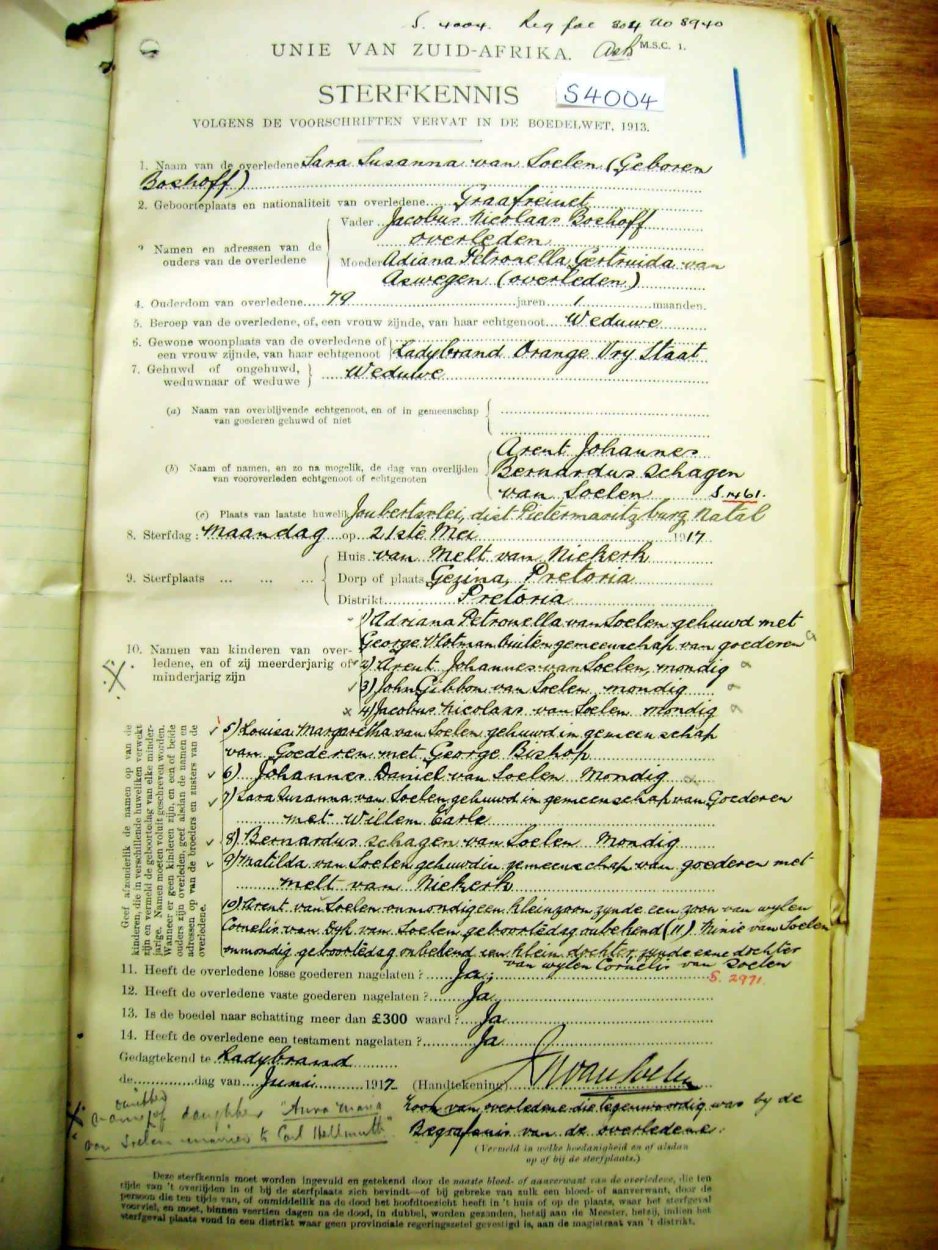 S. 4004. Reg fol 804 No 8940
UNIE VAN ZUID-AFRIKA. M.S.C. 1.
STERFKENNIS S4004
VOLGENS DE VOORSCHRIFTEN VERVAT IN DE BOEDELWET, 1913.
1. Naam van de overledene Sara Susanna van Soelen (Geboren
Boshoff)
2. Geboorteplaats en nationaliteit van overledene Graafreinet
3 Namen en adressen van de ouders van de overledene
Vader Jacobus Nicolaas Boshoff
overleden
Moeder Adiana Petronella Gertruida van
Aswegen (overleden)
4. Ouderdom van overledene 79 jaren 1 maanden.
5. Beroep van de overledene, of, een vrouw zijnde, van haar echtgenoot Weduwe
6. Gewone woonplaats van de overledene of
een vrouw zijnde, van haar echtgenoot Ladybrand Orange Vry Staat
7. Gehuwd of ongehuwd,
weduwnaar of weduwe Weduwe
(a) Naam van overblijvende echtgenoot, en of in gemeenschap
van goederen gehuwd of niet
(b) Naam of namen, en zo na mogelik, de dag van overlijden
van vooroverleden echtgenoot of echtgenoten
Arent Johannes
Bernardus Schagen
van Soelen S.1461.
(c) Plaats van laatste huwelik Joubertsvlei, dist Pietermaritzburg Natal
8. Sterfdag: Maandag op 21ste Mei 1917
9. Sterfplaats ... ... ...
Huis van Melt van Niekerk
Dorp of plaats Gezina, Pretoria
Distrikt Pretoria
10. Namen van kinderen van over-
ledene, en of zij meerderjarig of
minderjarig zijn
1) Adriana Petronella van Soelen gehuwd met
George Vlotman buiten gemeenschap van goederen
2) Arent Johannes van Soelen, mondig
3) John Gibbon van Soelen mondig
4) Jacobus Nicolaas van Soelen Mondig
Geef afzonderlik de namen op van de
kinderen, die in verschillende huweliken verwekt
zijn en vermeld de geboortedag van elke minder-
jarige. Namen moeten voluit geschreven worden.
Wanneer er geen kinderen zijn, en een of beide
ouders zijn overleden, geef alsdan de namen en
adressen op van de broeders en zusters van de
overledene.
5) Louisa Margaretha van Soelen gehuwd in gemeenschap
van Goederen met George Bishop
6) Johannes Daniel van Soelen Mondig
7) Sara Susanna van Soelen gehuwd in gemeenschap van Goederen
met Willem Earle
8) Bernardus Schagen van Soelen Mondig
9) Matilda van Soelen gehuwd in gemeenschap van goederen met
Melt van Niekerk
10) Arent van Soelen onmondig een kleinzoon zynde een zoon van wylen
Cornelis van Dyk van Soelen geboortedag onbekend (11). Minie van Soelen
onmondig geboortedag onbekend een klein dochter, zynde eene dochter
van wylen Cornelis van Soelen
11. Heeft de overledene losse goederen nagelaten? Ja S. 2971.
12. Heeft de overledene vaste goederen nagelaten? Ja
13. Is de boedel naar schatting meer dan £300 waard? Ja
14. Heeft de overledene een testament nagelaten? Ja
Gedagtekend te Ladybrand
de dag van Juni 1917. (Handtekening) van Soelen
omitted
name of daughter "Anna Maria
van Soelen married to Carl Hellmuth"
Zoon van overledene die tegenwoordig was by de
Begrafenis van de overledene.
(Vermeld in welke hoedanigheid en of alsdan
op of bij de sterfplaats.)
Deze sterfkennis moet worden ingevuld en getekend door de naaste bloed- of aanverwant van de overledene, die ten
tijde van 't overlijden in of bij de sterfplaats zich bevindt—of bij gebreke van zulk een bloed- of aanverwant, door de
persoon die ten tijde van, of onmiddellik na de dood het hoofdtoezicht heeft in 't huis of op de plaats, waar het sterfgeval
voorviel, en moet, binnen veertien dagen na de dood, in dubbel, worden gezonden, hetzij aan de Meester, hetzij, indien het
sterfgeval plaats vond in een distrikt waar geen provinciale regeringszetel gevestigd is, aan de magistraat van 't distrikt.